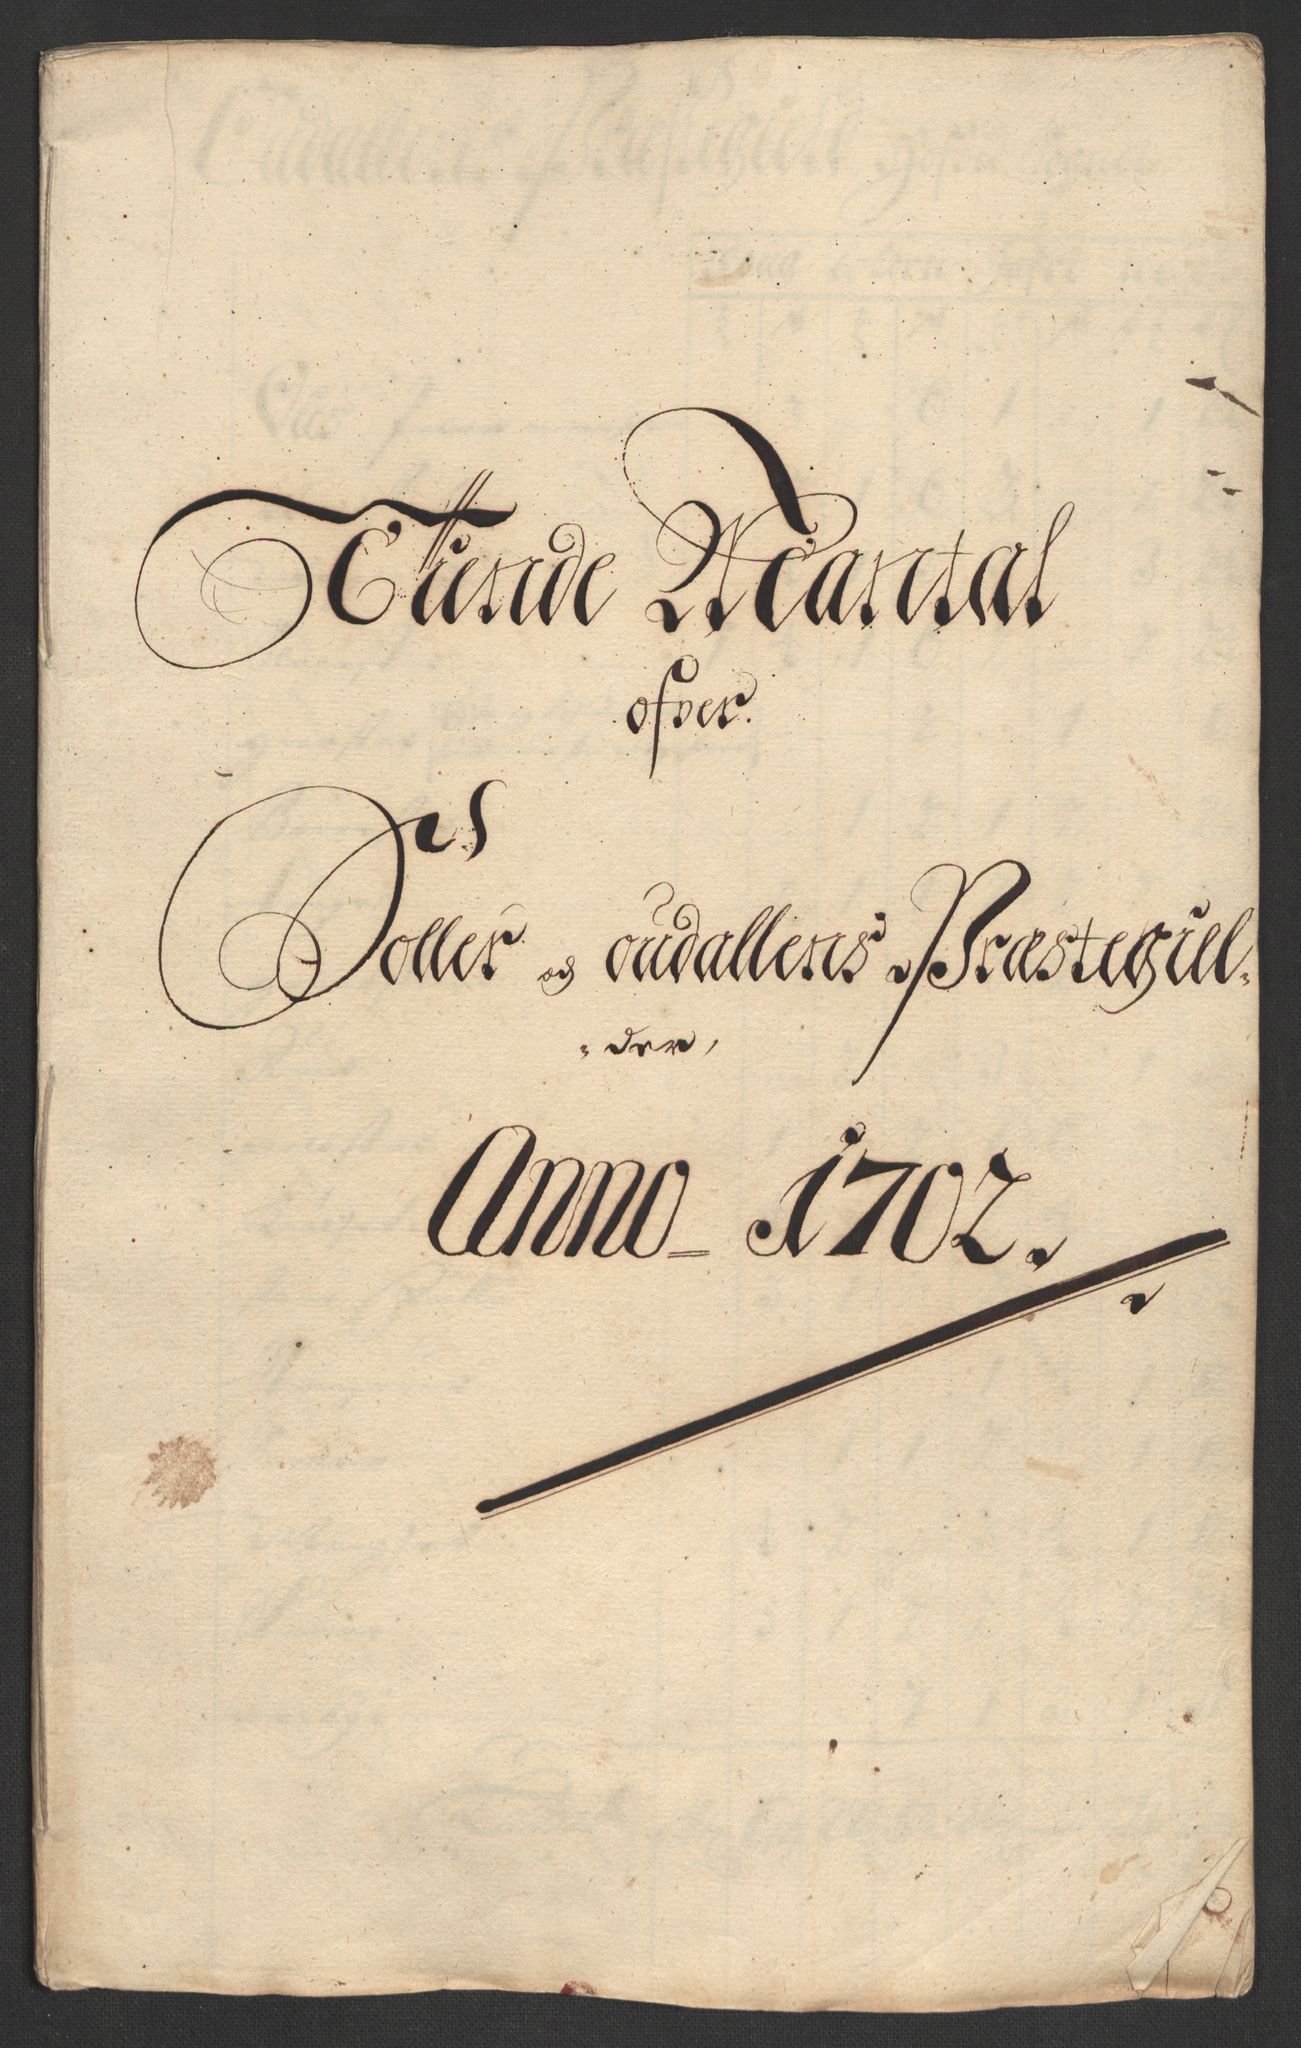 Tiende Mantal
ofver
Soller og oudallens Præstegiel-
der,
Anno 1702.